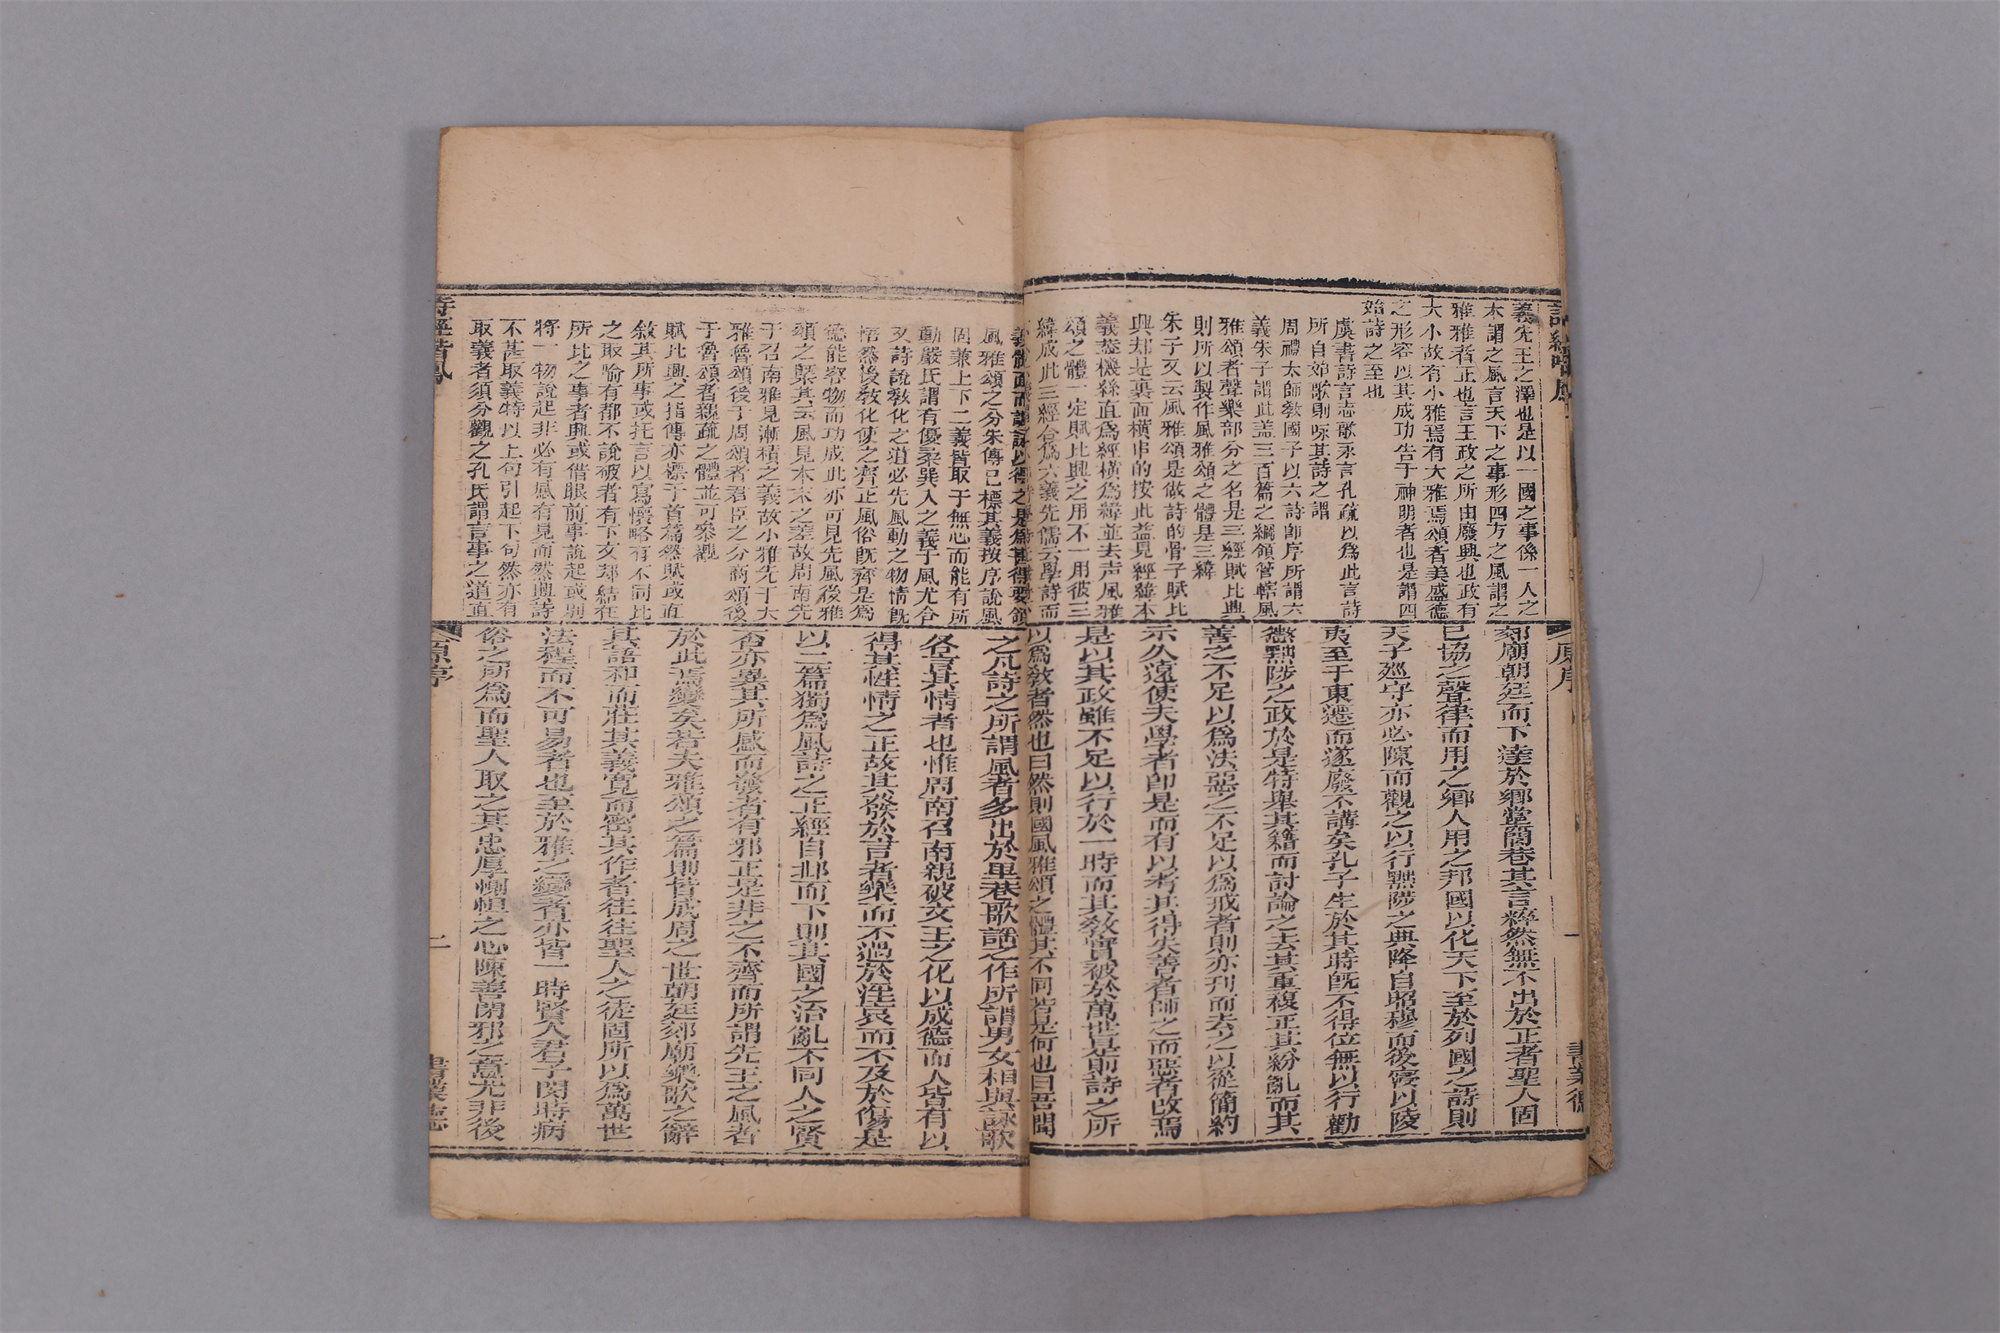 義先王之澤也是以一國之事係一人之
本謂之風言天下之事形四方之風謂之
雅雅者正也言王政之所由廢興也政有
大小故有小雅焉有大雅焉頌者美盛德
之形容以其成功告于神明者也是謂四
始詩之至也
虞書詩言志歌永言孔疏以為此言詩
所自始歌則咏其詩之謂
周禮太師教國子以六詩即序所謂六
義朱子謂此盖三百篇之綱領管轄風
雅頌者聲樂部分之名是三經賦比興
則所以製作風雅頌之體是三緯
朱子又云風雅頌是做詩的骨子賦比
興却是裏面橫串的按此益見經緯本
義葢機絲直為經橫為緯並去声風雅
頌之體一定賦比興之用不一用彼三
緯成此三經合為六義先儒云學詩而
風雅頌之分朱傳已標其義按序說風
固兼上下二義皆取于無心而能有所
動嚴氏謂有優柔巽入之義于風尤合
又詩說教化之道必先風動之物情旣
悟然後教化使之齊正風俗旣齊是為
德能容物而功成此亦可見先風後雅
頌之槩其云風見本末之差故周南先
于召南雅見漸積之義故小雅先于大
雅魯頌後于周頌者君臣之分商頌後
于魯頌者親疏之體並可參觀
賦比興之指傳亦標于首篇然賦或直
敘其所事或托言以寫懷略有不同比
之取喻有都不說破者有下文却結在
所比之事者興或借眼前事說起或別
將一物說起非必有感有見而然興詩
不甚取義特以上句引起下句然亦有
取義者須分觀之孔氏謂言事之道直
原序
郊廟朝廷而下達於鄉黨閭巷其言粹然無不出於正者聖人固
已協之聲律而用之鄉人用之邦國以化天下至於列國之詩則
天子廵守亦必陳而觀之以行黜陟之典降自昭穆而後寖以陵
夷至于東遷而遂廢不講矣孔子生於其時旣不得位無以行勸
懲黜陟之政於是特舉其籍而討論之去其重複正其紛亂而其
善之不足以為法惡之不足以為戒者則亦刋而去之以從簡約
示久遠使夫學者即是而有以考其得失善者師之而惡者改焉
是以其政雖不足以行於一時而其教實被於萬世是則詩之所
以為教者然也曰然則國風雅頌之體其不同若是何也曰吾聞
之凡詩之所謂風者多出於里巷歌謠之作所謂男女相與詠歌
各言其情者也惟周南召南親被文王之化以成德而人皆有以
得其性情之正故其發於言者樂而不過於淫哀而不及於傷是
以二篇獨為風詩之正經自邶而下則其國之治亂不同人之賢
否亦異其所感而發者有邪正是非之不齊而所謂先王之風者
於此焉變矣若夫雅頌之篇則皆成周之世朝廷郊廟樂歌之辭
其語和而莊其義寬而密其作者往往聖人之徒固所以為萬世
法程而不可易者也至於雅之變者亦皆一時賢人君子閔時病
俗之所為而聖人取之其忠厚惻怛之心陳善閉邪之意尤非後
原序
二